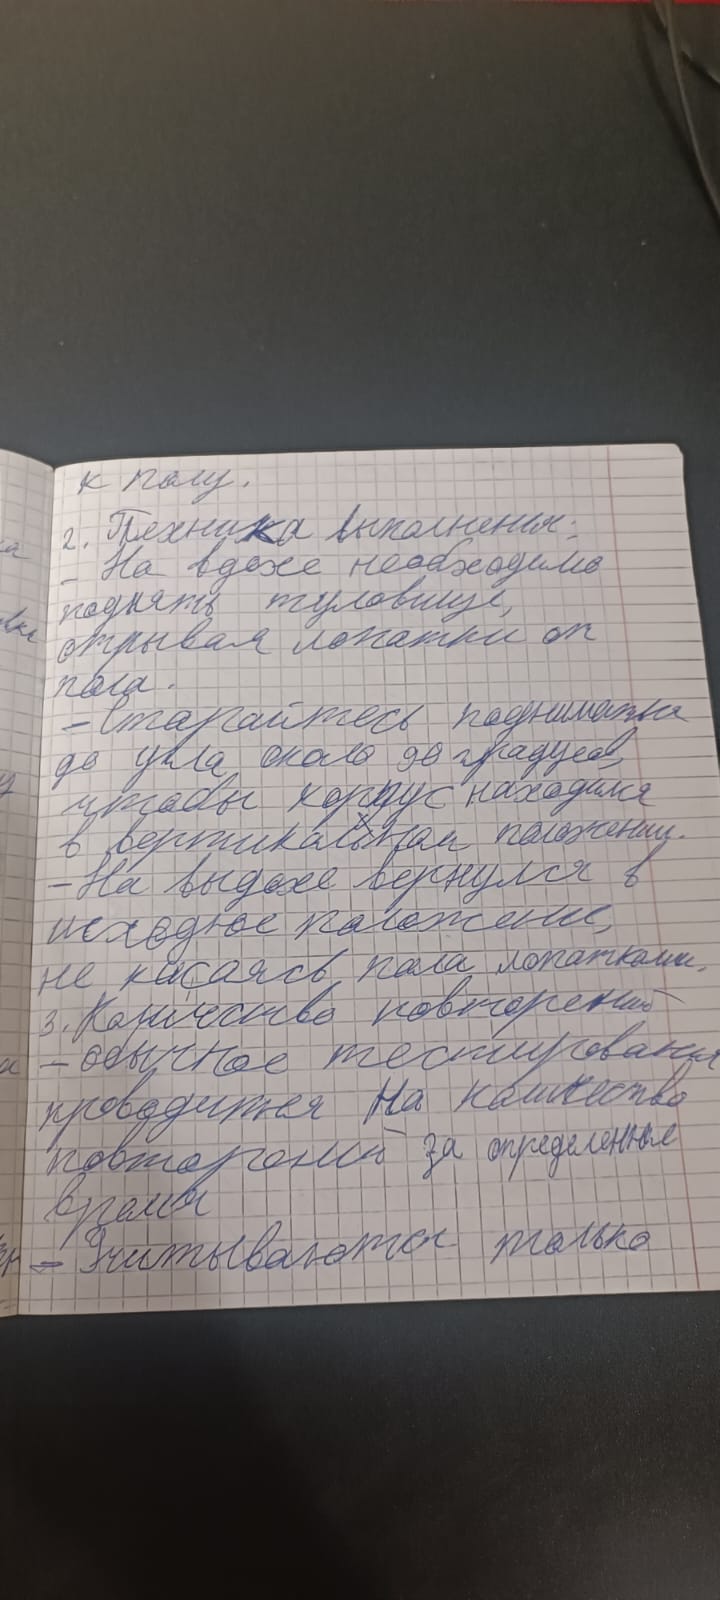 к полу.
2. Техника выполнения:
- На вдохе необходимо
поднять туловище,
отрывая лопатки от
пола.
- Старайтесь подниматься
до угла около 90 градусов,
чтобы корпус находился
в вертикальном положении.
- На выдохе вернулся в
исходное положение,
не касаясь пола лопатками.
3. Количество повторений
- обычное тестирование
проводится На количество
повторений за определенное
время
- Учитываются только